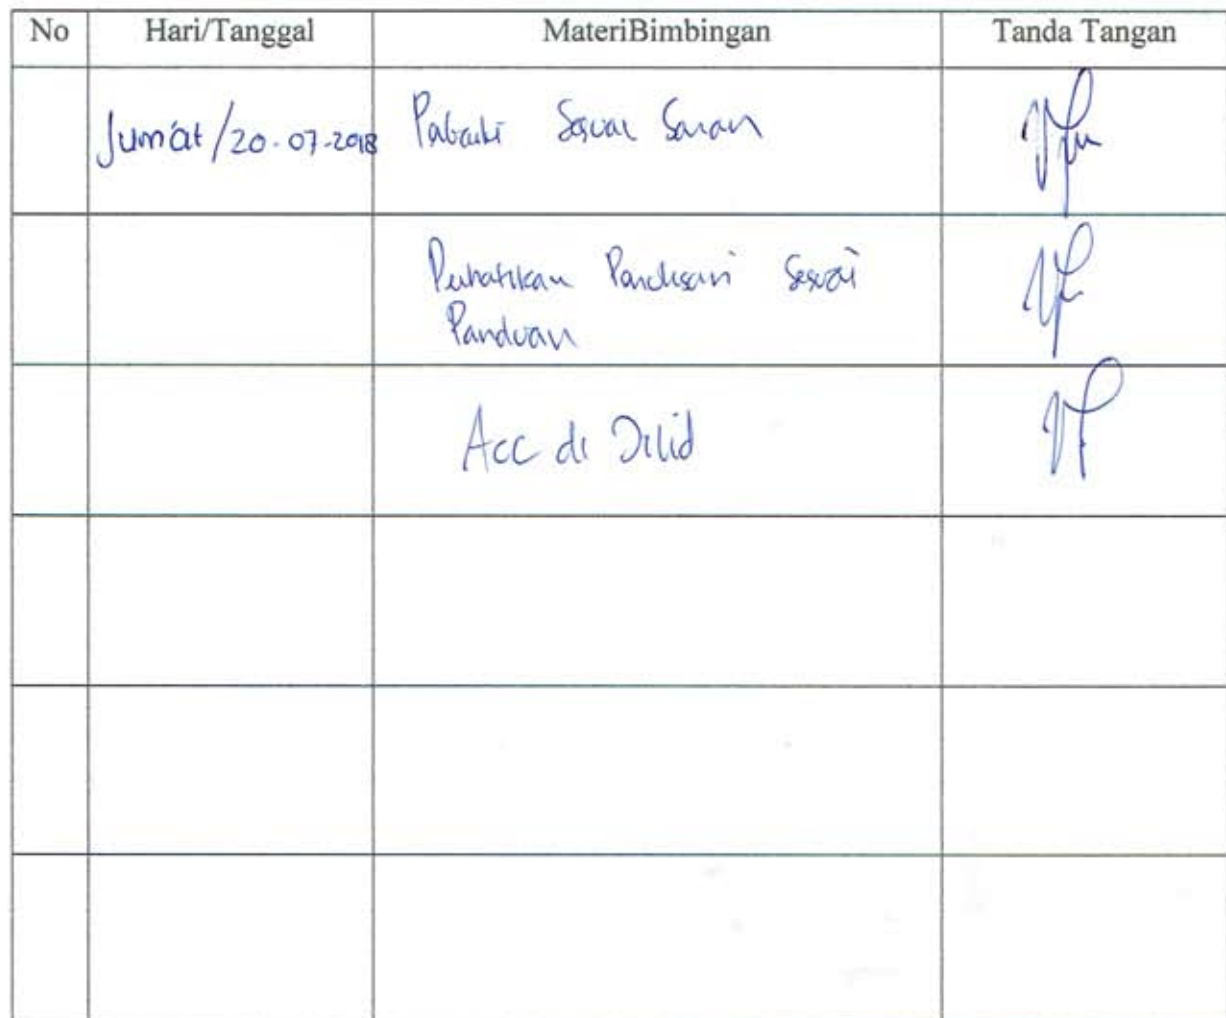 No Hari/Tanggal MateriBimbingan Tanda Tangan
Jum'at/20-07-2018 Perbaiki Sesuai Saran
Perhatikan Penulisan Sesuai
Panduan
Acc di Jilid